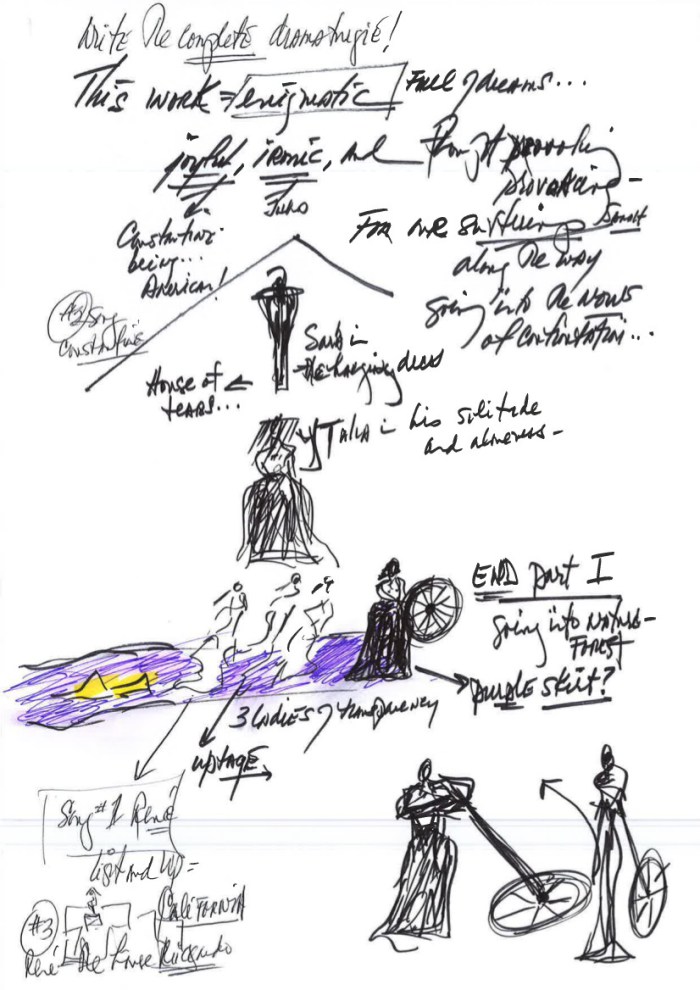 Write The complete dramaturgie!
This work = enigmatic Full of dreams...
joyful, ironic, and thought provoking
provoking -
Constantine
being...
American!
For me
along the way
going into the NOWS
of confrontation...
#2 Song
Constantine
House of
tears...
in
The hanging dress
in his solitude
and aloneness -
END part I
going into nature -
FOREST
purple skirt?
3 ladies of transparency
upstage
Song #1 René
list and up =
California
#3
René The house